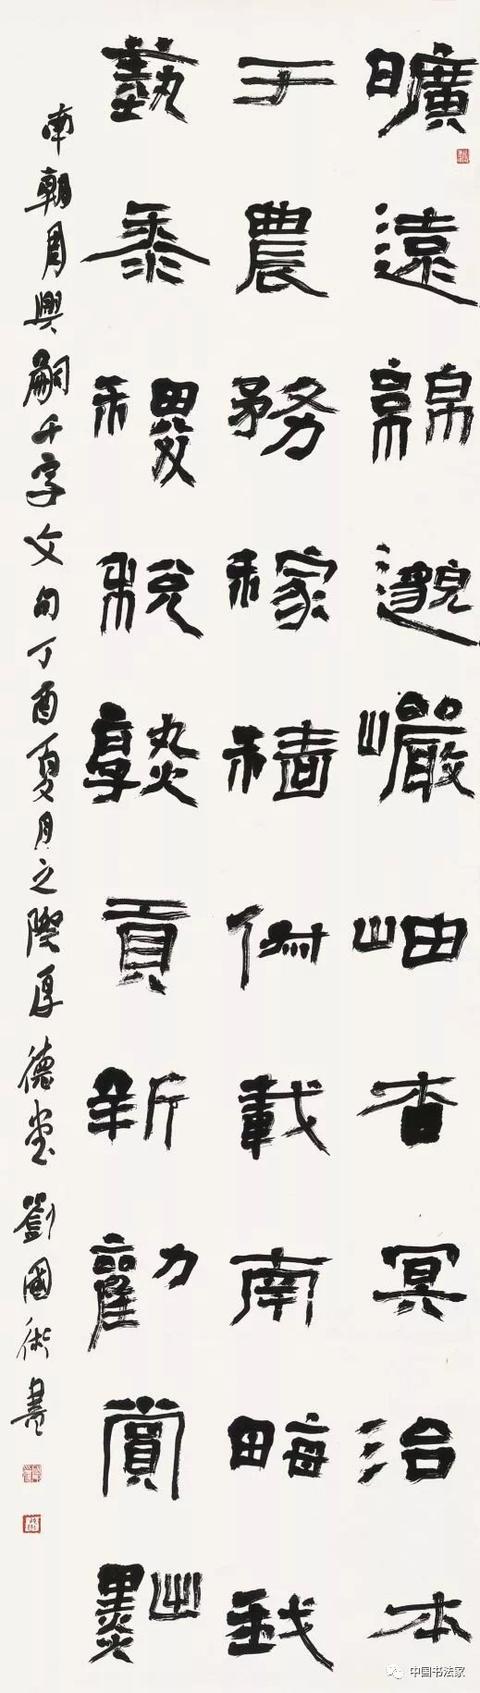 曠遠綿邈巖岫杳冥治本
于農務稼穡俶載南畝我
藝黍稷稅熟貢新勸賞黜
南朝周興嗣千字文句丁酉夏月之際厚德堂劉國術書
中国书法家